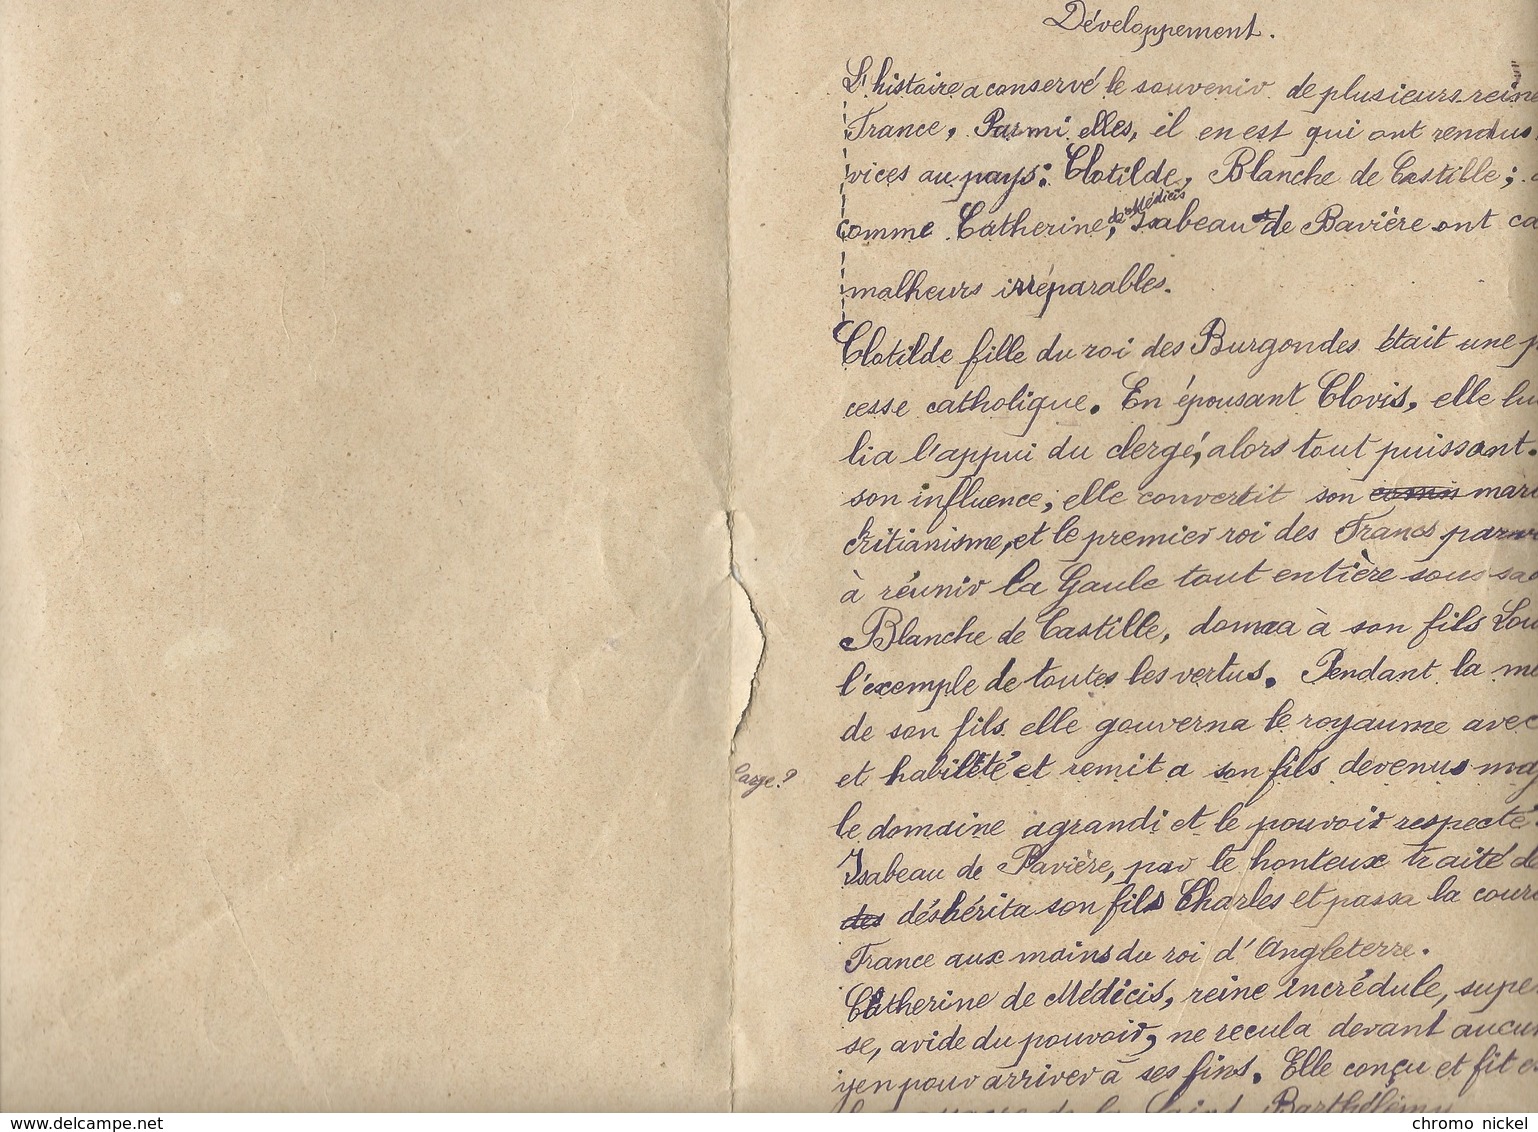 Développement.
L'histoire a conservé le souvenir de plusieurs reine
France, Parmi elles, il en est qui ont rendus
vices au pays: Clotilde, Blanche de Castille;
de Médicis
comme Catherine, Isabeau de Bavière ont ca
malheurs irréparables.
Clotilde fille du roi des Burgondes était une p
cesse catholique. En épousant Clovis, elle lui
lia l'appui du clergé, alors tout puissant.
son influence, elle convertit son mari
critianisme, et le premier roi des Francs parvi
à réunir la Gaule tout entière sous sa
Blanche de Castille, donna à son fils Lou
l'exemple de toutes les vertus. Pendant la m
de son fils elle gouverna le royaume avec
et habilité et remit a son fils devenus maj
large?
le domaine agrandi et le pouvoir respecté.
Isabeau de Bavière, par le honteux traité de
des déshérita son fils Charles et passa la cour
France aux mains du roi d'Angleterre.
Catherine de Médicis, reine incrédule, supe
se, avide du pouvoir, ne recula devant aucun
yen pour arriver à ses fins. Elle conçu et fit e
le massacre de la Saint Barthélémy
www.delcampe.net
chromo nickel